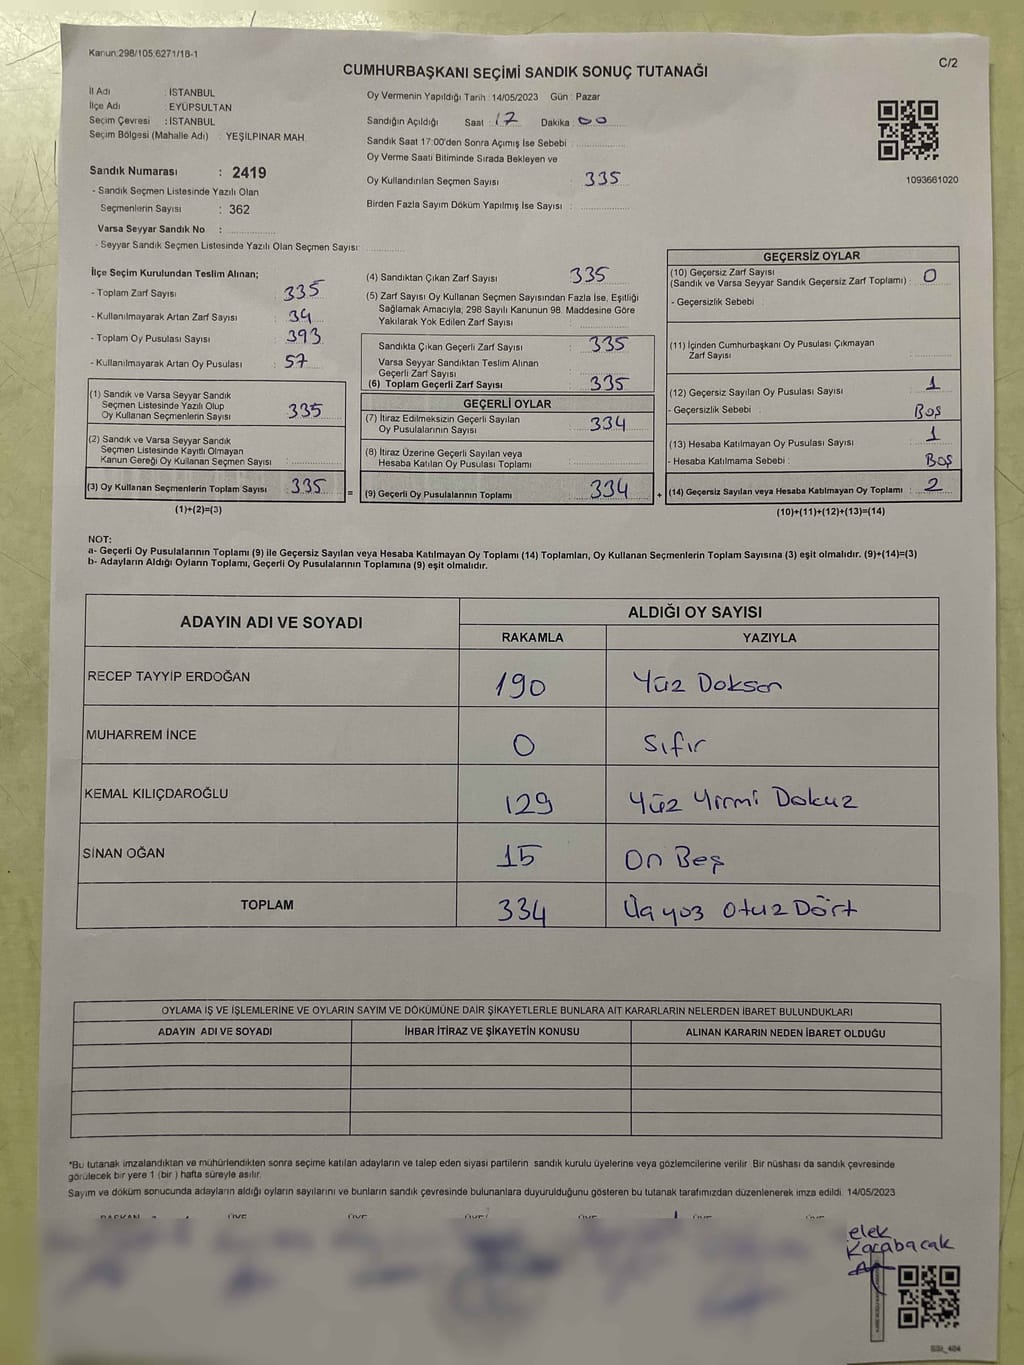 Kanun:298/105,6271/18-1
C/2
CUMHURBAŞKANI SEÇİMİ SANDIK SONUÇ TUTANAĞI
İl Adı : İSTANBUL
İlçe Adı : EYÜPSULTAN
Seçim Çevresi : İSTANBUL
Seçim Bölgesi (Mahalle Adı) : YEŞİLPINAR MAH.
Sandık Numarası : 2419
- Sandık Seçmen Listesinde Yazılı Olan
Seçmenlerin Sayısı : 362
Varsa Seyyar Sandık No :
- Seyyar Sandık Seçmen Listesinde Yazılı Olan Seçmen Sayısı:
Oy Vermenin Yapıldığı Tarih : 14/05/2023 Gün : Pazar
Sandığın Açıldığı Saat : 17 Dakika 00
Sandık Saat 17:00'den Sonra Açımış İse Sebebi :
Oy Verme Saati Bitiminde Sırada Bekleyen ve
Oy Kullandırılan Seçmen Sayısı : 335
Birden Fazla Sayım Döküm Yapılmış İse Sayısı :
1093661020
İlçe Seçim Kurulundan Teslim Alınan;
- Toplam Zarf Sayısı : 335
- Kullanılmayarak Artan Zarf Sayısı : 34
- Toplam Oy Pusulası Sayısı : 393
- Kullanılmayarak Artan Oy Pusulası : 57
(1) Sandık ve Varsa Seyyar Sandık
Seçmen Listesinde Yazılı Olup
Oy Kullanan Seçmenlerin Sayısı : 335
(2) Sandık ve Varsa Seyyar Sandık
Seçmen Listesinde Kayıtlı Olmayan
Kanun Gereği Oy Kullanan Seçmen Sayısı :
(3) Oy Kullanan Seçmenlerin Toplam Sayısı : 335 =
(1)+(2)=(3)
(4) Sandıktan Çıkan Zarf Sayısı 335
(5) Zarf Sayısı Oy Kullanan Seçmen Sayısından Fazla İse, Eşitliği
Sağlamak Amacıyla; 298 Sayılı Kanunun 98. Maddesine Göre
Yakılarak Yok Edilen Zarf Sayısı :
Sandıkta Çıkan Geçerli Zarf Sayısı : 335
Varsa Seyyar Sandıktan Teslim Alınan
Geçerli Zarf Sayısı :
(6) Toplam Geçerli Zarf Sayısı : 335
GEÇERLİ OYLAR
(7) İtiraz Edilmeksizin Geçerli Sayılan
Oy Pusulalarının Sayısı : 334
(8) İtiraz Üzerine Geçerli Sayılan veya
Hesaba Katılan Oy Pusulası Toplamı :
(9) Geçerli Oy Pusulalarının Toplamı : 334 +
GEÇERSİZ OYLAR
(10) Geçersiz Zarf Sayısı
(Sandık ve Varsa Seyyar Sandık Geçersiz Zarf Toplamı) : 0
- Geçersizlik Sebebi :
(11) İçinden Cumhurbaşkanı Oy Pusulası Çıkmayan
Zarf Sayısı :
(12) Geçersiz Sayılan Oy Pusulası Sayısı : 1
- Geçersizlik Sebebi : Boş
(13) Hesaba Katılmayan Oy Pusulası Sayısı : 1
- Hesaba Katılmama Sebebi : Boş
(14) Geçersiz Sayılan veya Hesaba Katılmayan Oy Toplamı : 2
(10)+(11)+(12)+(13)=(14)
NOT:
a- Geçerli Oy Pusulalarının Toplamı (9) ile Geçersiz Sayılan veya Hesaba Katılmayan Oy Toplamı (14) Toplamları, Oy Kullanan Seçmenlerin Toplam Sayısına (3) eşit olmalıdır. (9)+(14)=(3)
b- Adayların Aldığı Oyların Toplamı, Geçerli Oy Pusulalarının Toplamına (9) eşit olmalıdır.
ADAYIN ADI VE SOYADI ALDIĞI OY SAYISI
RAKAMLA YAZIYLA
RECEP TAYYİP ERDOĞAN 190 Yüz Doksan
MUHARREM İNCE 0 Sıfır
KEMAL KILIÇDAROĞLU 129 Yüz Yirmi Dokuz
SİNAN OĞAN 15 On Beş
TOPLAM 334 Üç yüz Otuz Dört
OYLAMA İŞ VE İŞLEMLERİNE VE OYLARIN SAYIM VE DÖKÜMÜNE DAİR ŞİKAYETLERLE BUNLARA AİT KARARLARIN NELERDEN İBARET BULUNDUKLARI
ADAYIN ADI VE SOYADI İHBAR İTİRAZ VE ŞİKAYETİN KONUSU ALINAN KARARIN NEDEN İBARET OLDUĞU
*Bu tutanak imzalandıktan ve mühürlendikten sonra seçime katılan adayların ve talep eden siyasi partilerin sandık kurulu üyelerine veya gözlemcilerine verilir. Bir nüshası da sandık çevresinde
görülecek bir yere 1 (bir ) hafta süreyle asılır.
Sayım ve döküm sonucunda adayların aldığı oyların sayılarını ve bunların sandık çevresinde bulunanlara duyurulduğunu gösteren bu tutanak tarafımızdan düzenlenerek imza edildi. 14/05/2023
BAŞKAN ÜYE ÜYE ÜYE ÜYE ÜYE ÜYE
elek
Karabacak